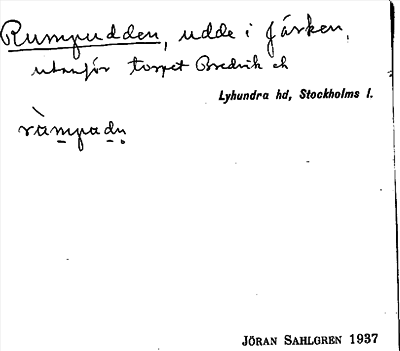 Rumpudden, udde i Järken,
utanför torpet Bredvik ch
Lyhundra hd, Stockholms l.
ràmpadn
JÖRAN SAHLGREN 1937